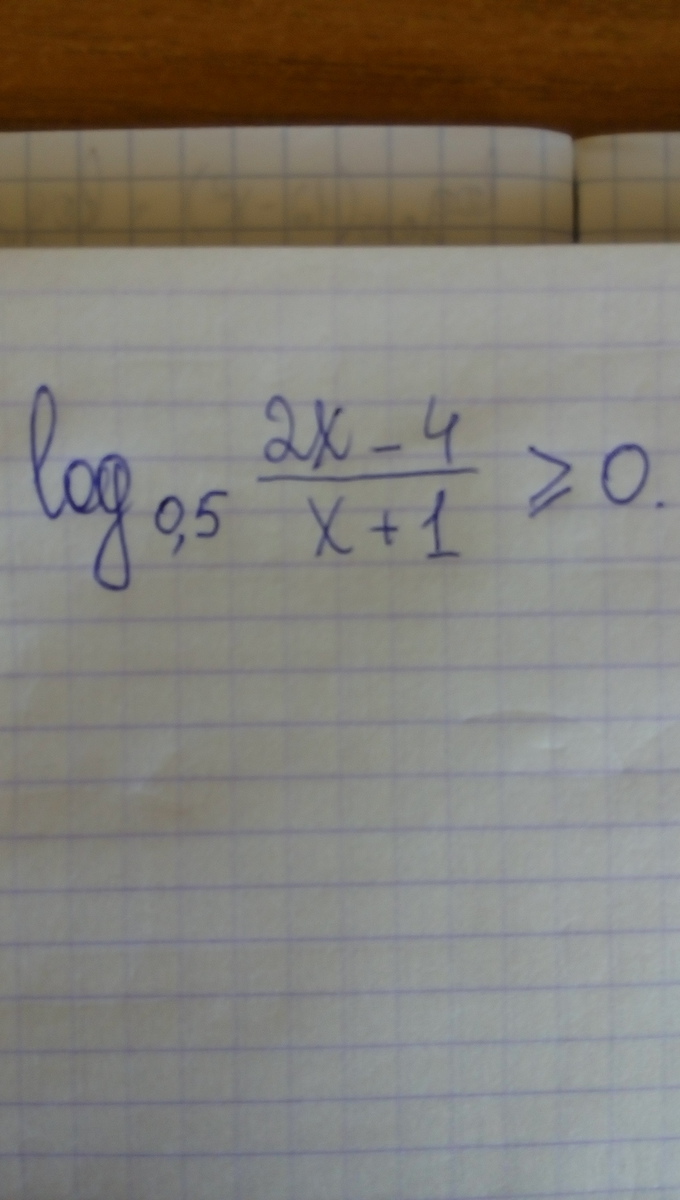 log₀,₅ (2x - 4)/(x + 1) ⩾ 0.